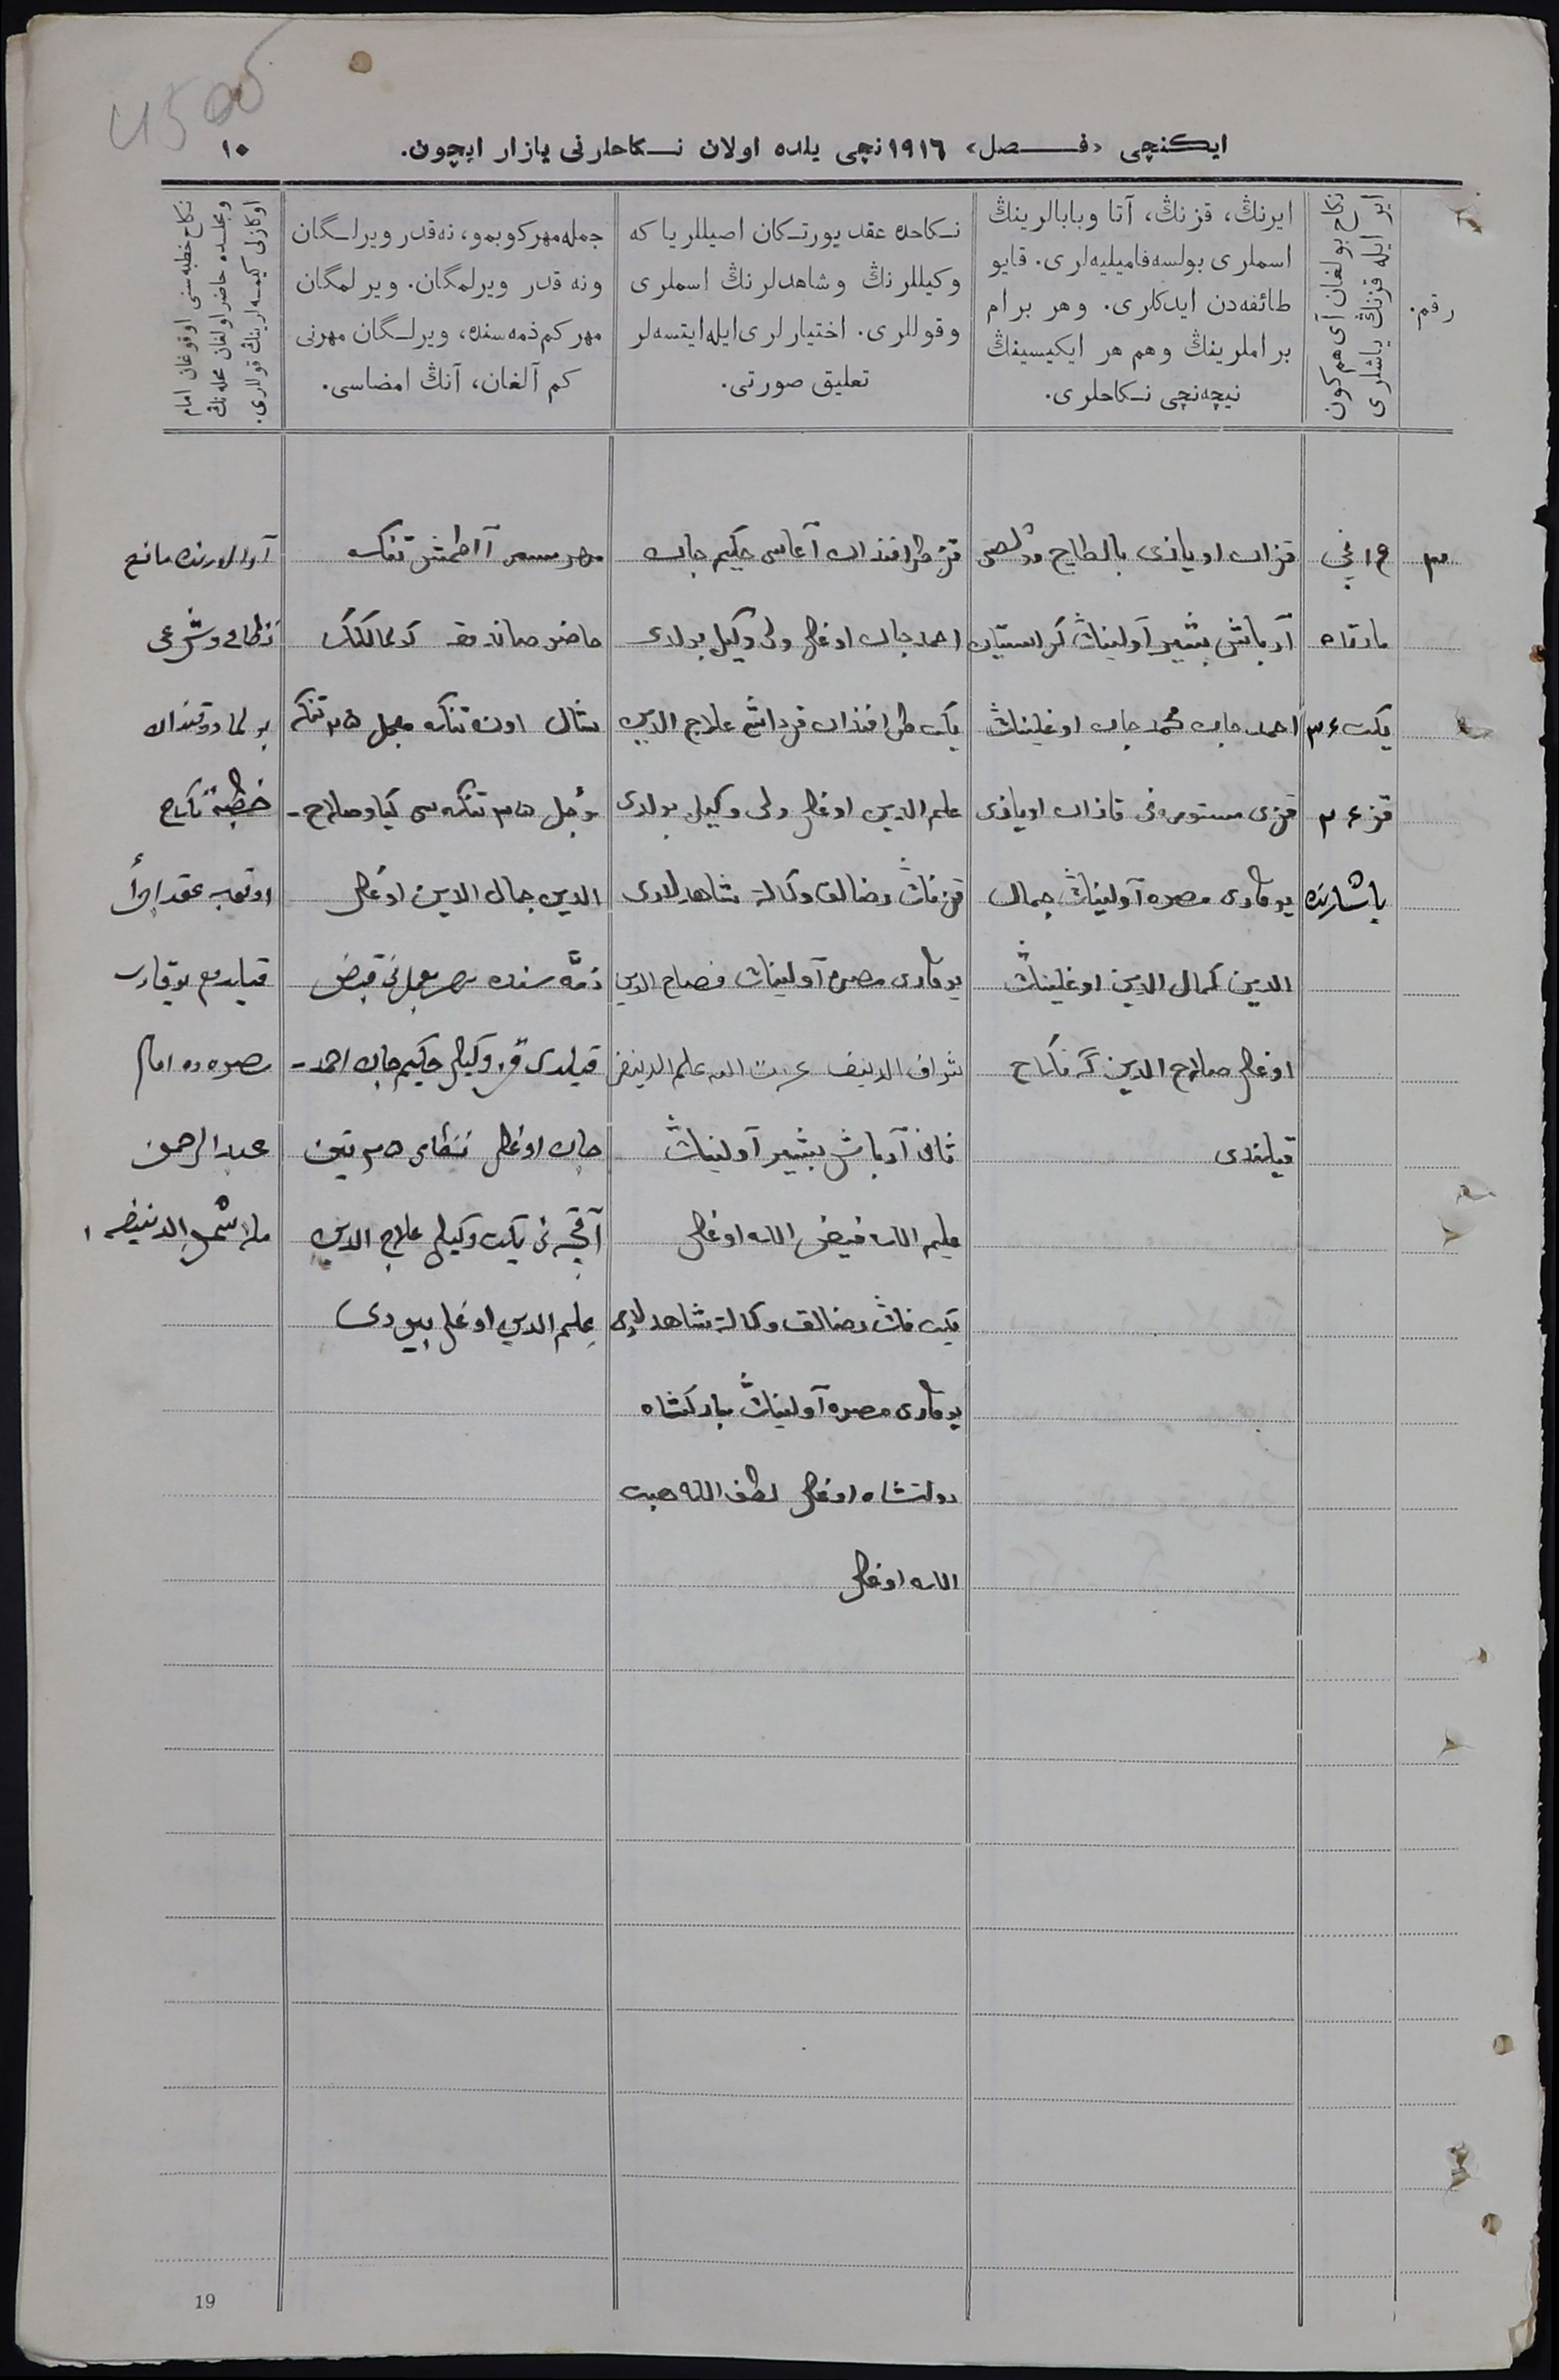 ایكنچی «فصل» ۱۹۱٦نچی یلده اولان نكاحلرنی یازار ایچون.
۱۰
رقم.
نكاح بولغان آی هم كون
ایر ایله قزنڭ یاشلری
ایرنڭ، قزنڭ، آتا وبابالرینڭ
اسملری بولسه فامیلیه‌لری. قایو
طائفه‌دن ایدكلری. وهر برام
براملرینڭ وهم هر ایكیسینڭ
نیچه‌نچی نكاحلری.
نكاحده عقد یورتكان اصیللر یا كه
وكیللرنڭ وشاهدلرنڭ اسملری
وقوللری. اختیارلری ایله ایتسه‌لر
تعلیق صورتی.
جمله مهر كوبمو، نه‌قدر ویرلگان
ونه قدر ویرلمگان. ویرلمگان
مهر كم ذمه‌سنده، ویرلگان مهرنی
كم آلغان، آنڭ امضاسی.
نكاح خطبه‌سنی اوقوغان امام
ومجلسده حاضر اولغان محله‌نڭ
اوكازلی كیمسه‌لرینڭ قوللری.
۳
۱۹ نچی
مارتده
یكت ۳۶
قز ۲۶
یاشلرنده
قزان اویازی بالطاچ
آرباش بشیر آولینڭ
احمد جان محمد جان اوغلینڭ
قزی مستوره‌نی قازان اویازی
یوقاری مصره آولینڭ جمال
الدین كمال الدین اوغلینڭ
اوغلی صلاح الدین گه نكاح
قیلندی
قز طرافندان آغاسی حكیم جان
احمد جان اوغلی ولی وكیل بولدی
یكت طرافندان قرداشی علاج الدین
علم الدین اوغلی ولی وكیل بولدی
قزنڭ رضالق وكالة شاهدلاری
یوقاری مصره آولینڭ فصاح الدین
شراف الدینف عزت الله علم الدینف
ثانی آرباش بشیر آولینڭ
علیم الله فیض الله اوغلی
یكت نڭ رضالق وكالة شاهدلاری
یوقاری مصره آولینڭ بارکشاه
دولتشاه اوغلی لطف الله هبت
الله اوغلی
مهر آلطمش تنكه
حاضر
شال اون تنكه معجل ۲۵ تنكه
مؤجل ۳۵ تنكه سی كیاو صلاح-
الدین جمال الدین اوغلی
ذمه سنده مهر معجلنی قبض
قیلدی قز وكیلی حكیم جان احمد-
جان اوغلی نظامی ۲۵ تین
آقچه نی یكت وكیلی علاج الدین
علم الدین اوغلی بیردی
آرالارنده مانع
نظامی وشرعی
بولمادوقندان
خطبهٔ نكاح
اوقوب عقد اجرا
قیلدم یوقاری
مصره ده امام
عبد الرحمن
ملا شمس الدینف
19